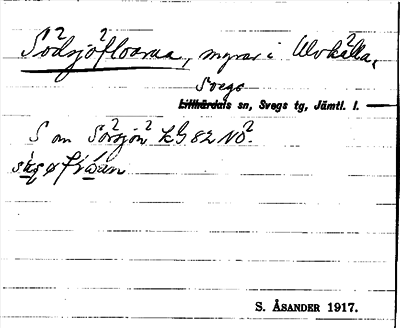 Södsjöfloarna, myrar i Ulvkälla,
Svegs
Lillhärdals sn, Svegs tg, Jämtl. l.
S om Sörsjön KG 82 NO.
S. ÅSANDER 1917.